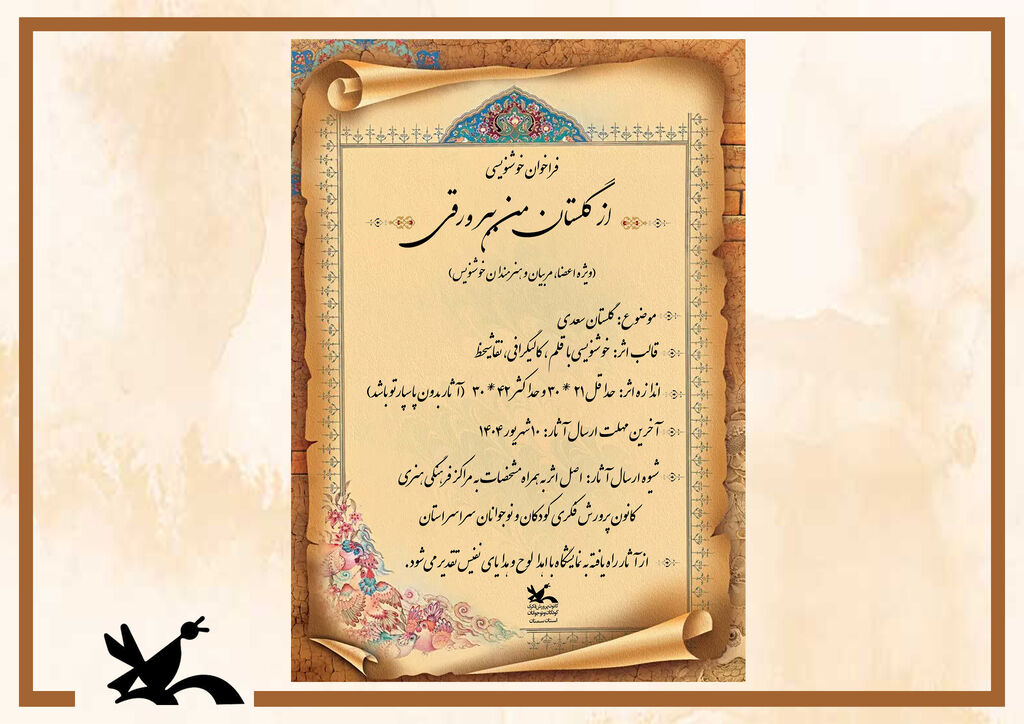 فراخوان خوشنویسی
از گلستان من ببر ورقی
(ویژه اعضا، مربیان و هنرمندان خوشنویس)
موضوع: گلستان سعدی
قالب اثر: خوشنویسی با قلم، کالیگرافی، نقاشیخط
اندازه اثر: حداقل ۲۱ * ۳۰ و حداکثر ۴۲ * ۳۰ (آثار بدون پاسپارتو باشد)
آخرین مهلت ارسال آثار: ۱۰ شهریور ۱۴۰۴
شیوه ارسال آثار: اصل اثر به همراه مشخصات به مراکز فرهنگی هنری
کانون پرورش فکری کودکان و نوجوانان سراسر استان
از آثار راه یافته به نمایشگاه با اهدا لوح و هدایای نفیس تقدیر می شود.
کانون پرورش فکری
کودکان و نوجوانان
استان سمنان